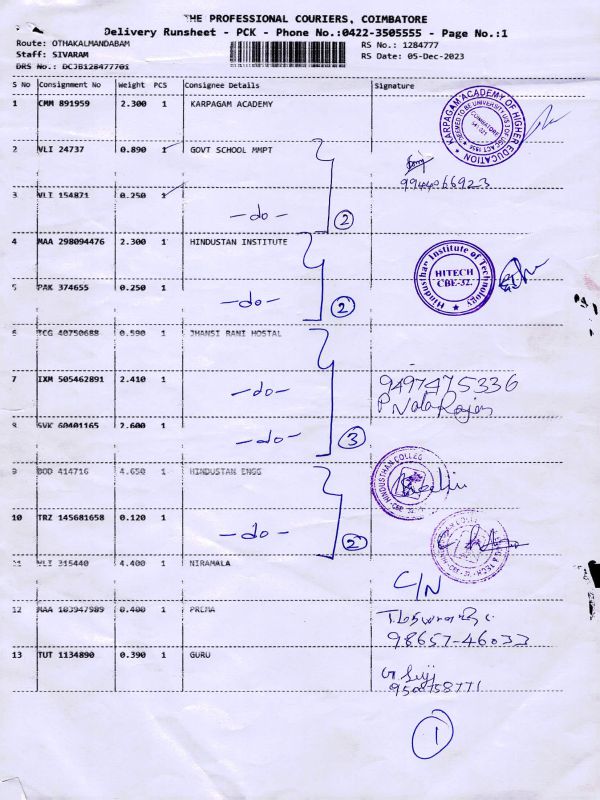 THE PROFESSIONAL COURIERS, COIMBATORE
Delivery Runsheet - PCK - Phone No.:0422-3505555 - Page No.:1
Route: OTHAKALMANDABAM RS No.: 1284777
Staff: SIVARAM RS Date: 05-Dec-2023
DRS No.: DCJB128477701
S No Consignment No Weight PCS Consignee Details Signature
1 CMM 891959 2.300 1 KARPAGAM ACADEMY
KARPAGAM ACADEMY OF HIGHER EDUCATION
COIMBATORE
2 VLI 24737 0.890 1 GOVT SCHOOL MMPT
3 VLI 154871 0.250 1 -do- 2
4 MAA 298094476 2.300 1 HINDUSTAN INSTITUTE
Hindusthan Institute of Technology
HITECH
CBE-32.
5 PAK 374655 0.250 1 -do- 2
6 TCG 40750688 0.590 1 JHANSI RANI HOSTAL
7 IXM 505462891 2.410 1 -do- 9497475336
8 SVK 60401165 2.600 1 -do- 3
9 BOD 414716 4.650 1 HINDUSTAN ENGG
10 TRZ 145681658 0.120 1 -do- 2
11 VLI 315440 4.400 1 NIRAMALA
C/N
12 MAA 103947989 0.400 1 PREMA
98657-46033
13 TUT 1134890 0.390 1 GURU
1